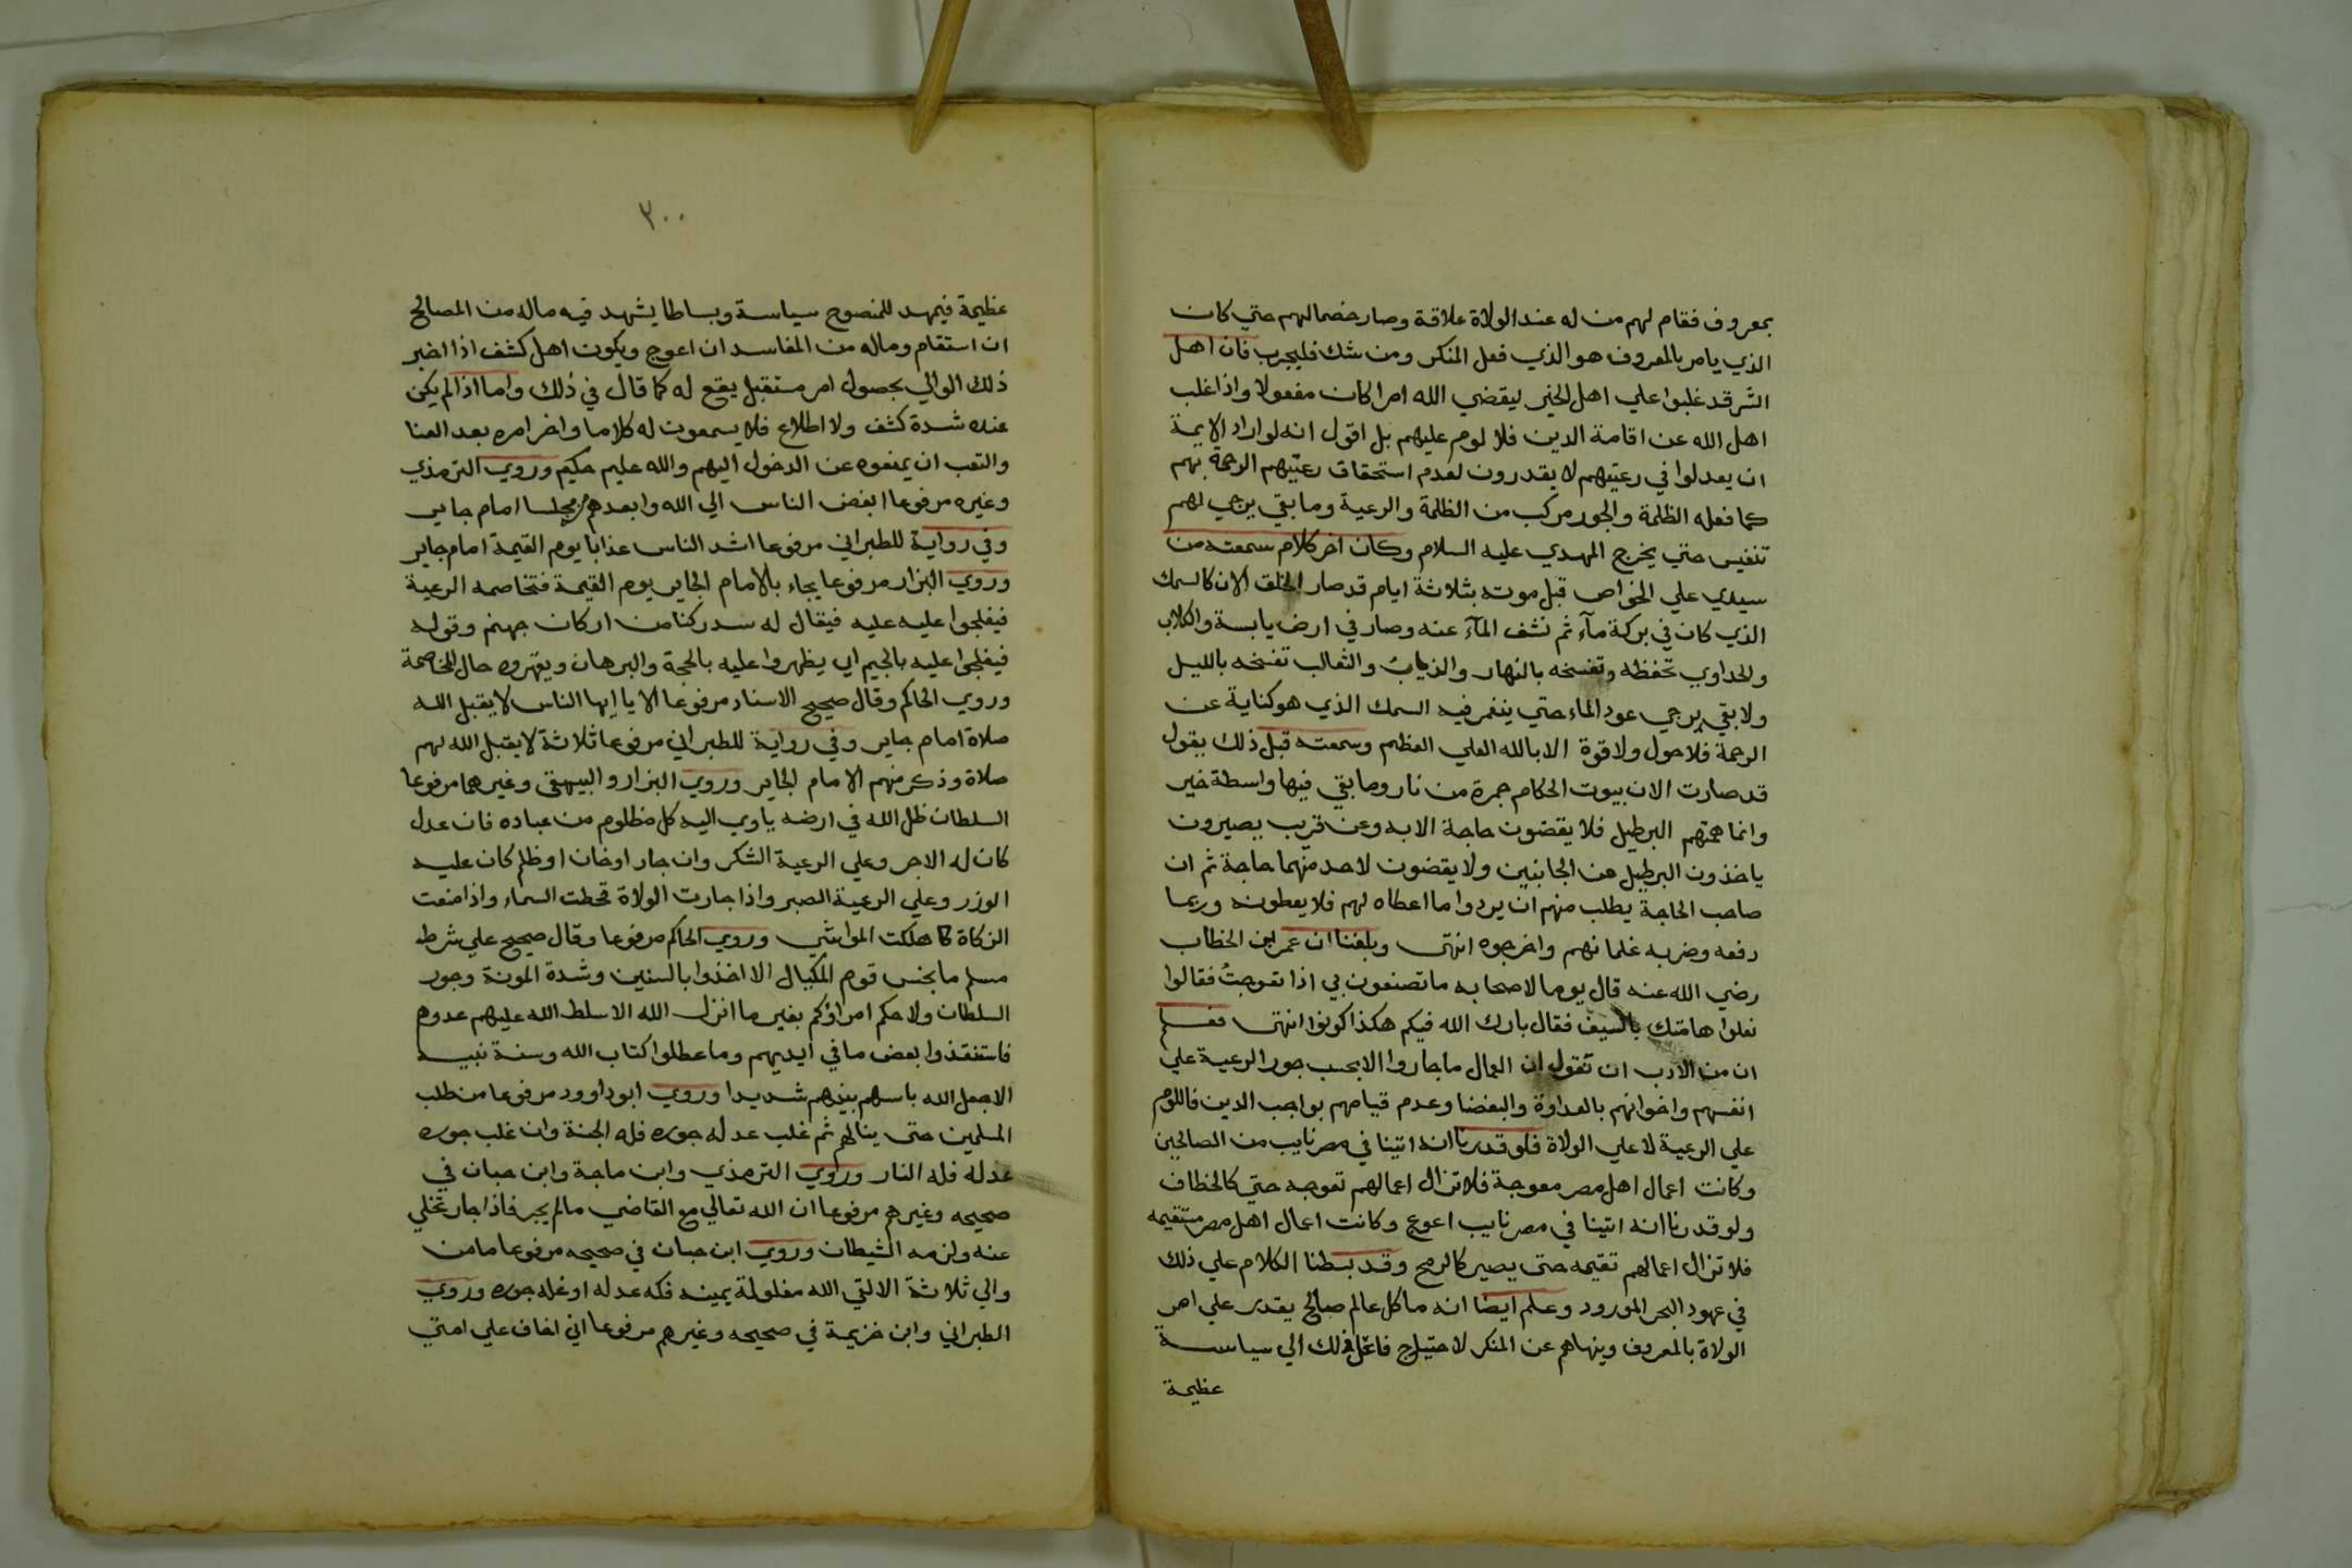 بمعروف فقام لهم من له عند الولاة علاقة وصار خصما لهم حتي كان
الذي يامر بالمعروف هو الذي فعل المنكر ومن شك فليجرب فان اهل
الشر قد غلبوا علي اهل الخير ليقضي الله امرا كان مفعولا واذا غلب
اهل الله عن اقامة الدين فلا لوم عليهم بل اقول انه لو اراد الايمة
ان يعدلوا في رعيتهم لا يقدرون لعدم استحقاق رعيتهم الرحمة بهم
كما فعله الظلمة والجور مركب من الظلمة والرعية وما بقي يرجي لهم
تنفيس حتي يخرج المهدي عليه السلام وكان اخر كلام سمعته من
سيدي علي الخواص قبل موته بثلاثة ايام قد صار الخلق الان كالسمك
الذي كان في بركة مآء ثم نشف المآء عنه وصار في ارض يابسة والكلاب
والحداوي تخفظه وتفسخه بالنهار والذياب والثعالب تفسخه بالليل
ولا بقي يرجي عود الماء حتي ينغمر فيه السمك الذي هو كناية عن
الرحمة فلا حول ولا قوة الا بالله العلي العظيم وسمعته قبل ذلك يقول
قد صارت الان بيوت الحكام جمرة من نار وما بقي فيها واسطة خير
وانما همتهم البرطيل فلا يقضون حاجة الا به وعن قريب يصيرون
ياخذون البرطيل من الجانبين ولا يقضون لاحد منهما حاجة ثم ان
صاحب الحاجة يطلب منهم ان يردوا ما اعطاه لهم فلا يعطونه وربما
رفعه وضربه غلمانهم واخرجوه انتهى وبلغنا ان عمر ابن الخطاب
رضي الله عنه قال يوما لاصحابه ما تصنعون بي اذا تعوجتُ فقالوا
نعلوا هامتك بالسيف فقال بارك الله فيكم هكذا كونوا انتهى فعلم
ان من الادب ان تقول ان العمال ما جاروا الا بحسب جور الرعية علي
انفسهم واخوانهم بالعداوة والبغضا وعدم قيامهم بواجب الدين فاللوم
علي الرعية لا علي الولاة فلو قدرنا انه اتينا في مصر نايب من الصالحين
وكانت اعمال اهل مصر معوجة فلا تزال اعمالهم تعوجه حتي كالخطاف
ولو قدرنا انه اتينا في مصر نايب اعوج وكانت اعمال اهل مصر مستقيمه
فلا تزال اعمالهم تقيمه حتى يصير كالرمح وقد بسطنا الكلام علي ذلك
في عهود البحر المورود وعلم ايضا انه ما كل عالم صالح يقدر علي امر
الولاة بالمعروف وينهاهم عن المنكر لاحتياج فاعل ذلك الي سياسة
عظيمة
٢٠٠
عظيمة فيمهد للمنصوح سياسة وبساطا يشهد فيه ماله من المصالح
ان استقام وماله من المفاسد ان اعوج ويكون اهل كشف اذا اخبر
ذلك الوالي بحصول امر مستقبل يقع له كما قال في ذلك واما اذا لم يكن
عنده شدة كشف ولا اطلاع فلا يسمعون له كلاما واخر امره بعد العنا
والتعب ان يمنعوه عن الدخول اليهم والله عليم حكيم وروي الترمذي
وغيره مرفوعا ابغض الناس الي الله وابعدهم مجلسا امام جاير
وفي رواية للطبراني مرفوعا اشد الناس عذابا يوم القيمة امام جاير
وروي البزار مرفوعا يجاء بالامام الجاير يوم القيمة فتخاصمه الرعية
فيفلجوا عليه عليه فيقال له سد ركنا من اركان جهنم وقوله
فيفلجوا عليه بالجيم اي يظهروا عليه بالحجة والبرهان ويقهروه حال المخاصمة
وروي الحاكم وقال صحيح الاسناد مرفوعا الا يا ايها الناس لا يقبل الله
صلاة امام جاير وفي رواية للطبراني مرفوعا ثلاثة لا يقبل الله لهم
صلاة وذكر منهم الامام الجاير وروي البزار والبيهقي وغيرهما مرفوعا
السلطان ظل الله في ارضه ياوي اليه كل مظلوم من عباده فان عدل
كان له الاجر وعلي الرعية الشكر وان جار اوخان اوظلم كان عليه
الوزر وعلي الرعية الصبر واذا جارت الولاة قحطت السماء واذا منعت
الزكاة هلكت المواشي وروي الحاكم مرفوعا وقال صحيح علي شرط
مسلم ما بخس قوم المكيال الا اخذوا بالسنين وشدة المونة وجور
السلطان ولا حكم امراؤكم بغير ما انزل الله الا سلط الله عليهم عدوهم
فاستنقذوا بعض ما في ايديهم وما عطلوا كتاب الله وسنة نبيه
الا جعل الله باسهم بينهم شديدا وروي ابو داوود مرفوعا من طلب
المسلمين حتى ينالهم ثم غلب عدله جوره فله الجنة وان غلب جوره
عدله فله النار وروي الترمذي وابن ماجة وابن حبان في
صحيحه وغيرهم مرفوعا ان الله تعالي مع القاضي مالم يجر فاذا جار تخلي
عنه ولزمه الشيطان وروي ابن حبان في صحيحه مرفوعا ما من
والي ثلاثة الا لقي الله مغلولة يمينه فكه عدله او غله جوره وروي
الطبراني وابن خزيمة في صحيحه وغيرهم مرفوعا اني اخاف علي امتي